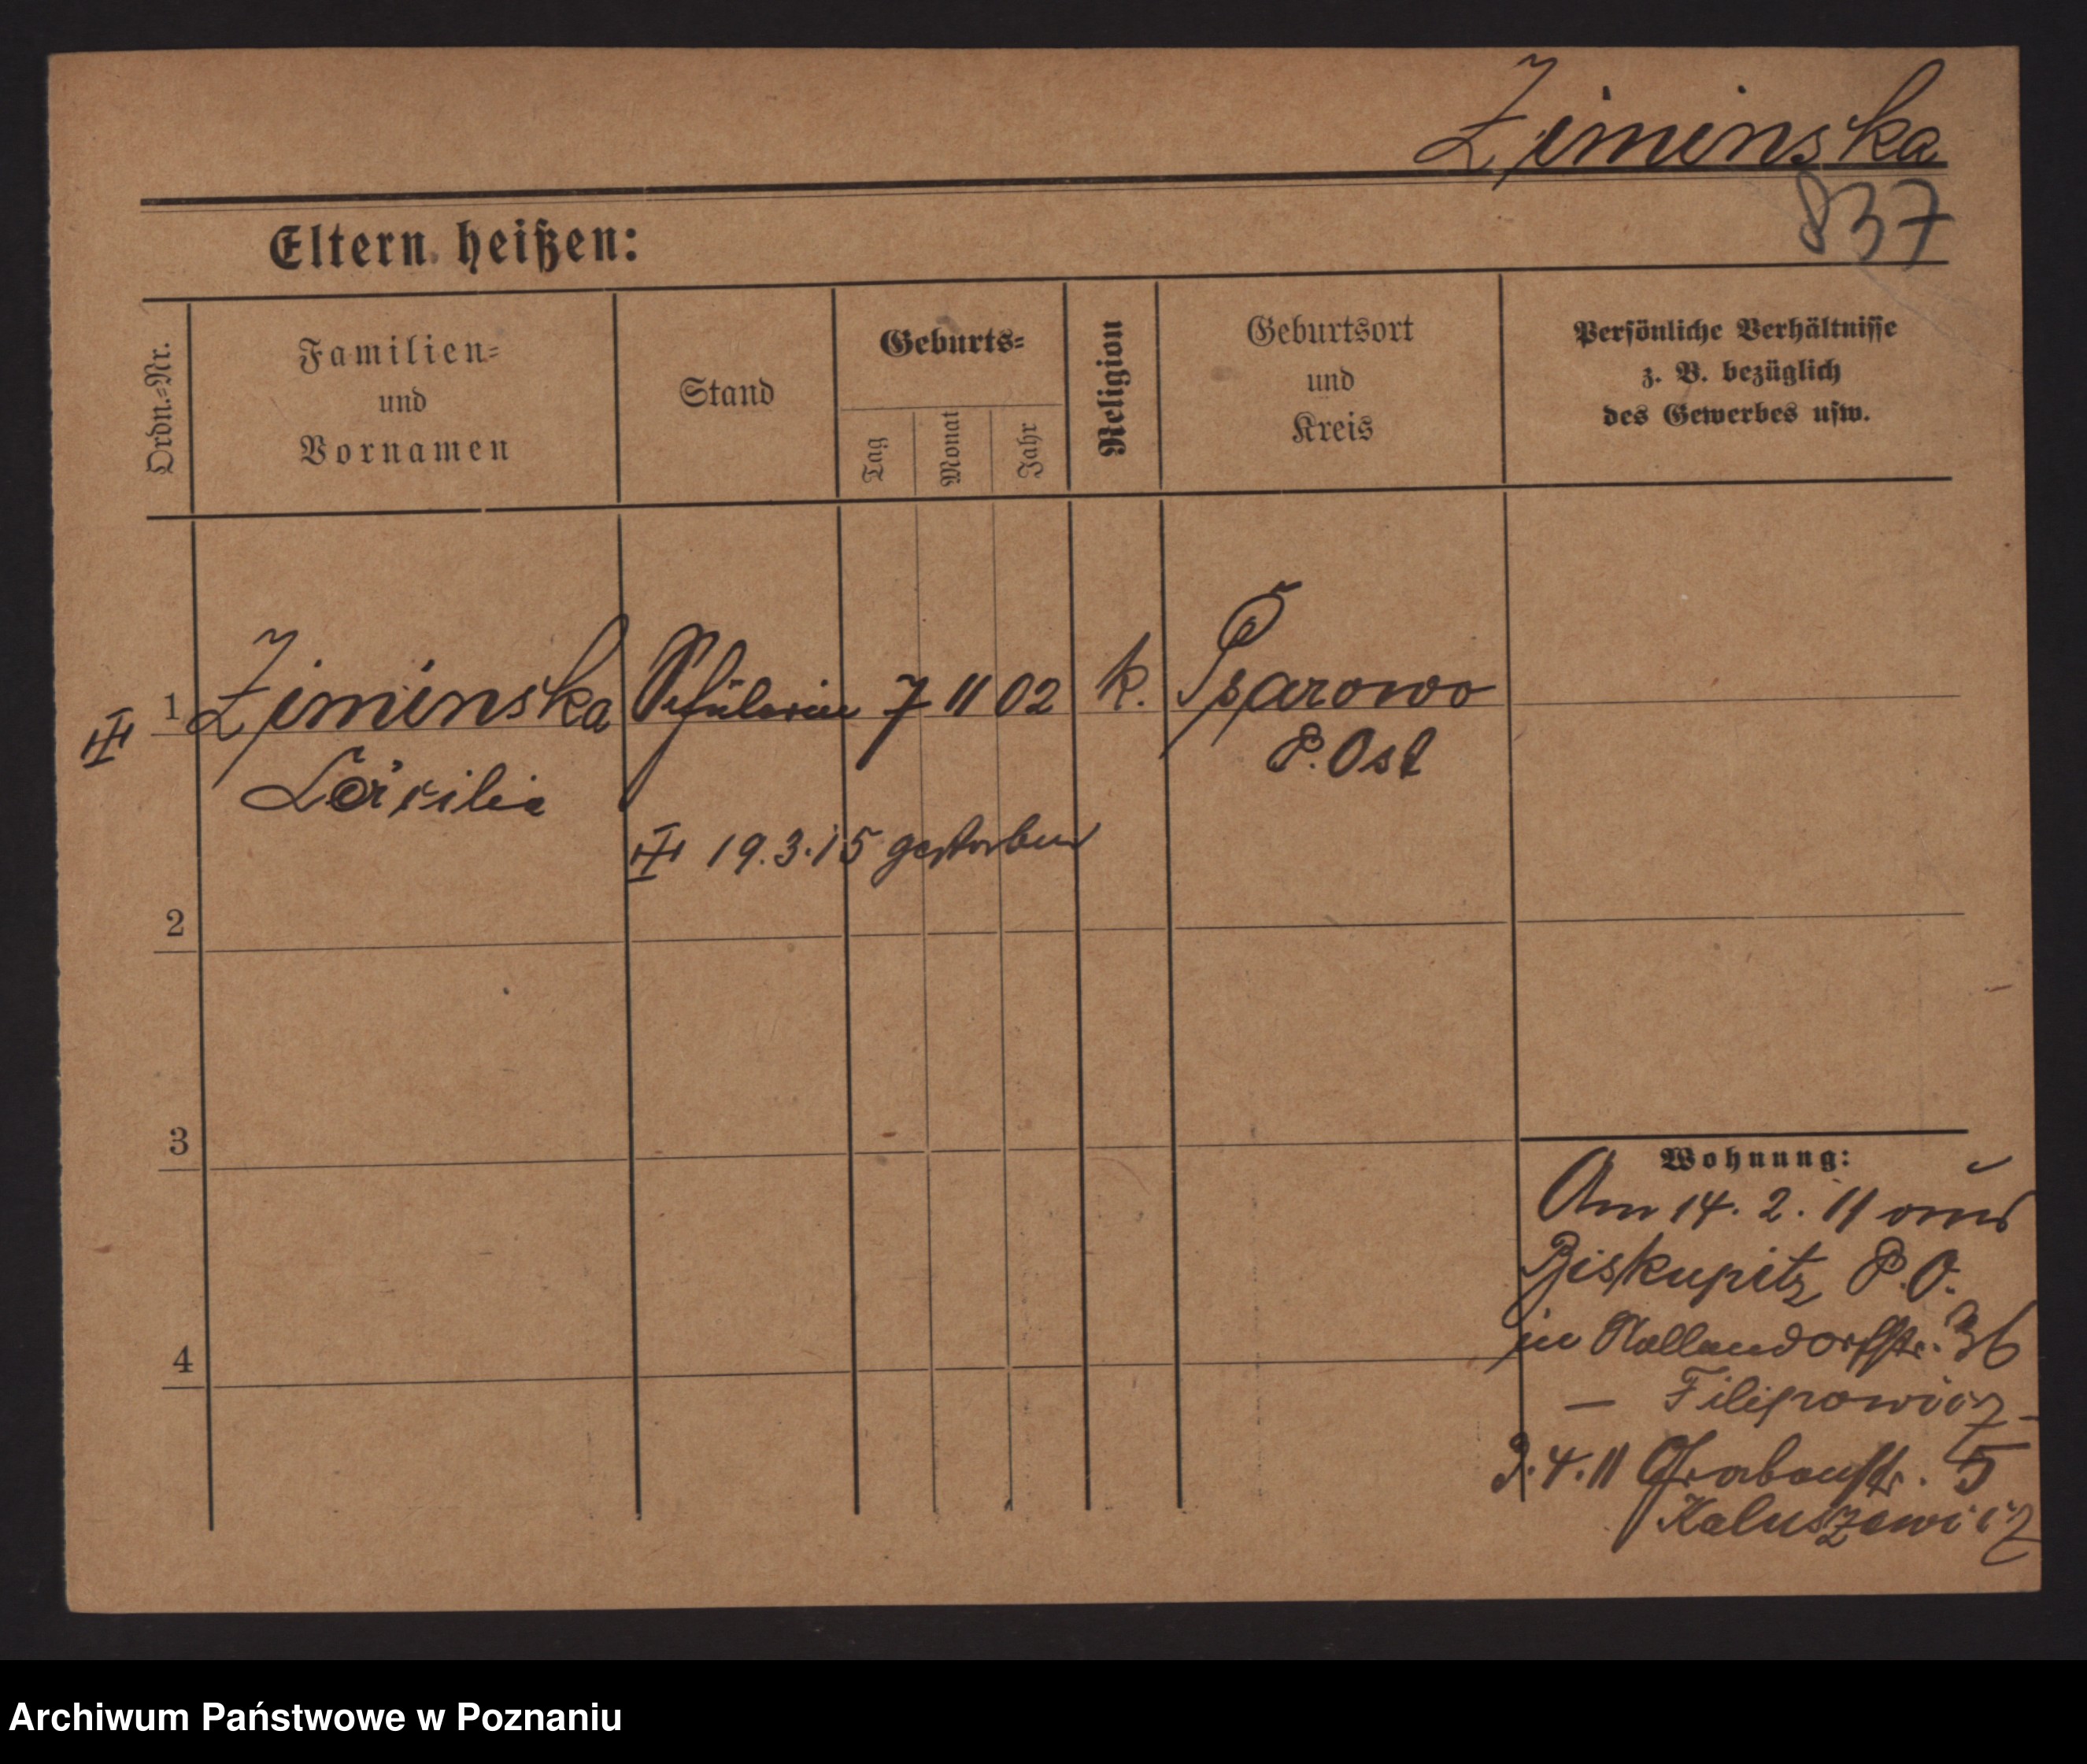 Ziminska
837
Eltern heißen:
Ordn.=Nr.
Familien=
und
Vornamen
Stand
Geburts=
Tag
Monat
Jahr
Religion
Geburtsort
und
Kreis
Persönliche Verhältnisse
z. B. bezüglich
des Gewerbes usw.
1 Ziminska Schülerin 7 11 02 k. Psarowo
Cäcilie P. Ost
19.3.15 gestorben
2
3
4
Wohnung:
Am 14. 2. 11 aus
Biskupitz P. O.
in Nollendorfstr. 36
– Filipowicz –
3. 4. 11 Grabenstr. 5
Kaluszewicz
Archiwum Państwowe w Poznaniu